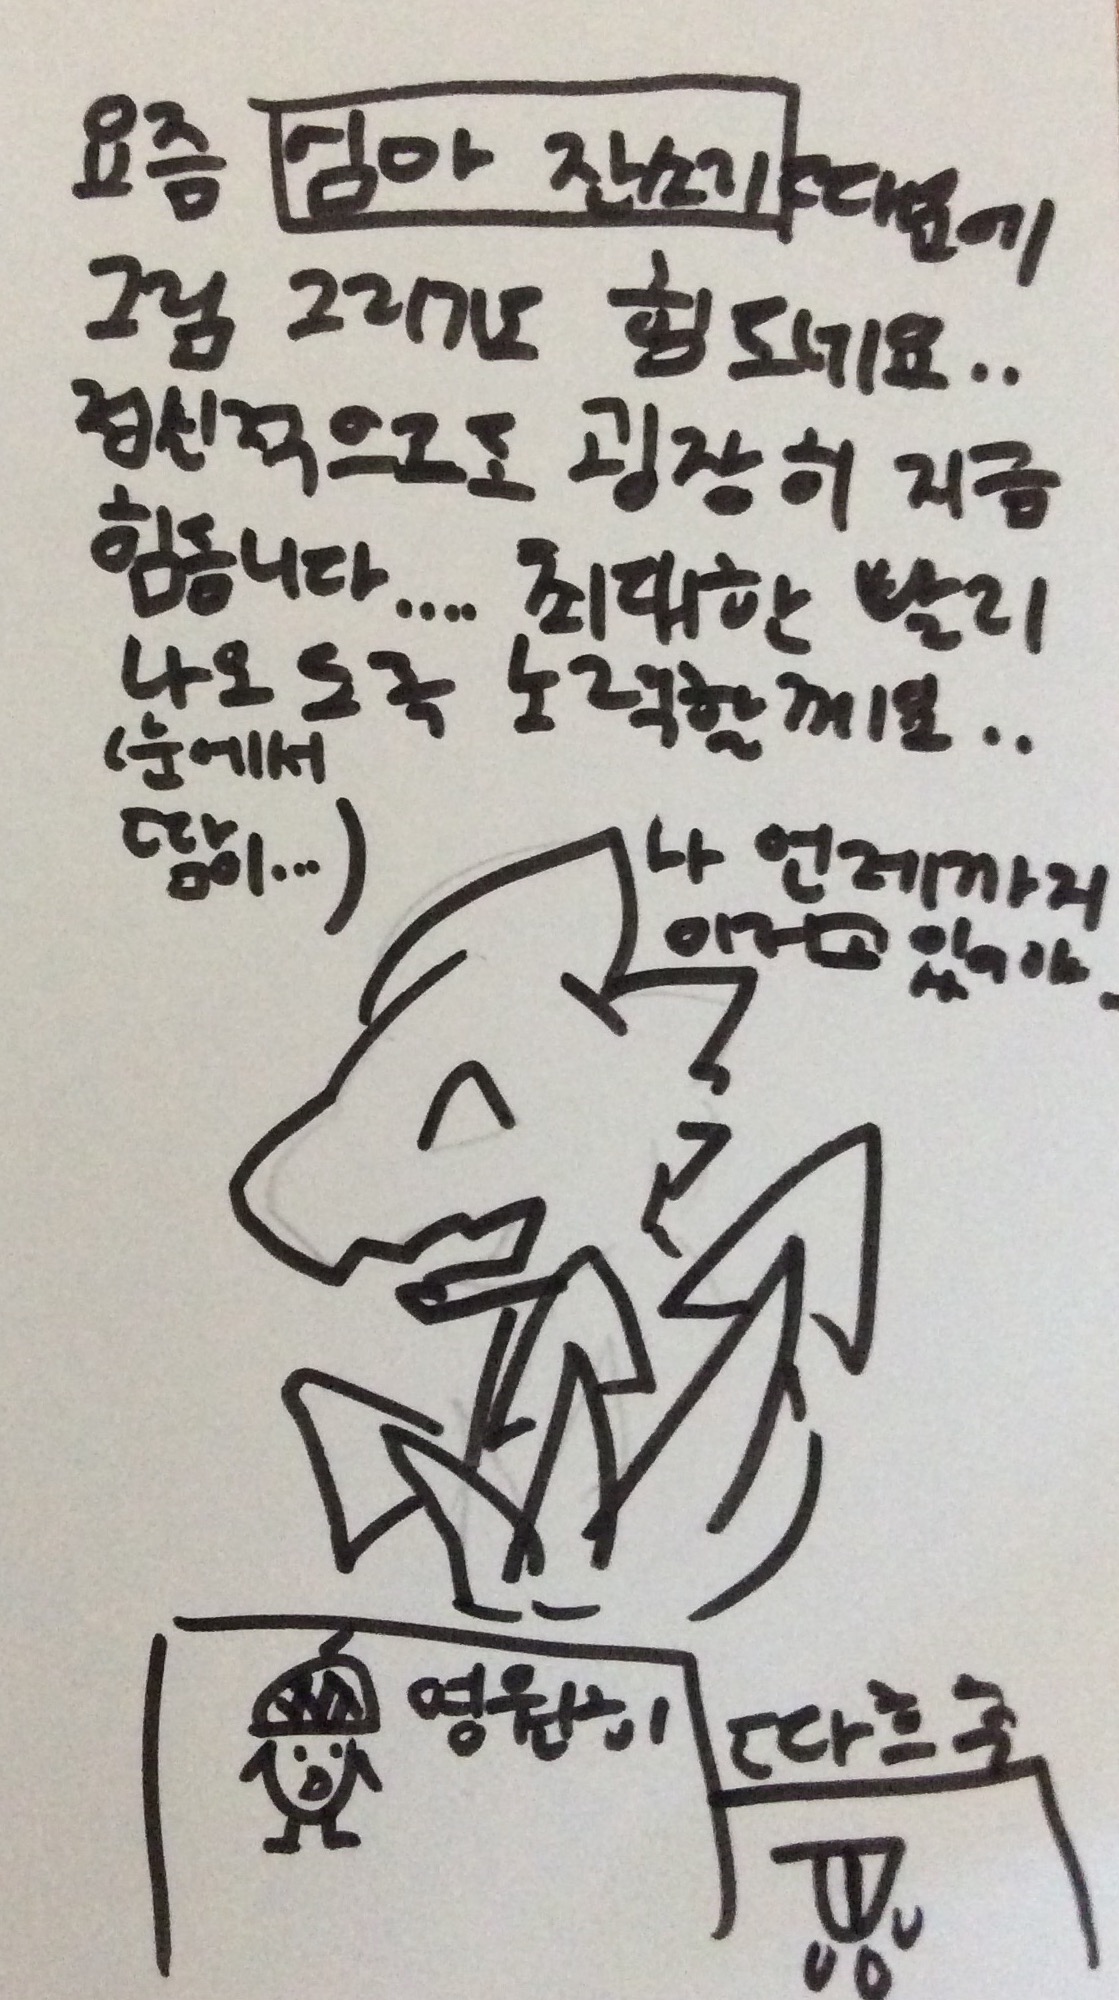 요즘 엄마 잔소리 때문에
그림 그리기도 힘드네요..
정신적으로도 굉장히 지금
힘듭니다.... 최대한 빨리
나오도록 노력할께요..
(눈에서
땀이...)
나 언제까지
이러고 있어야_
영원히
따르륵